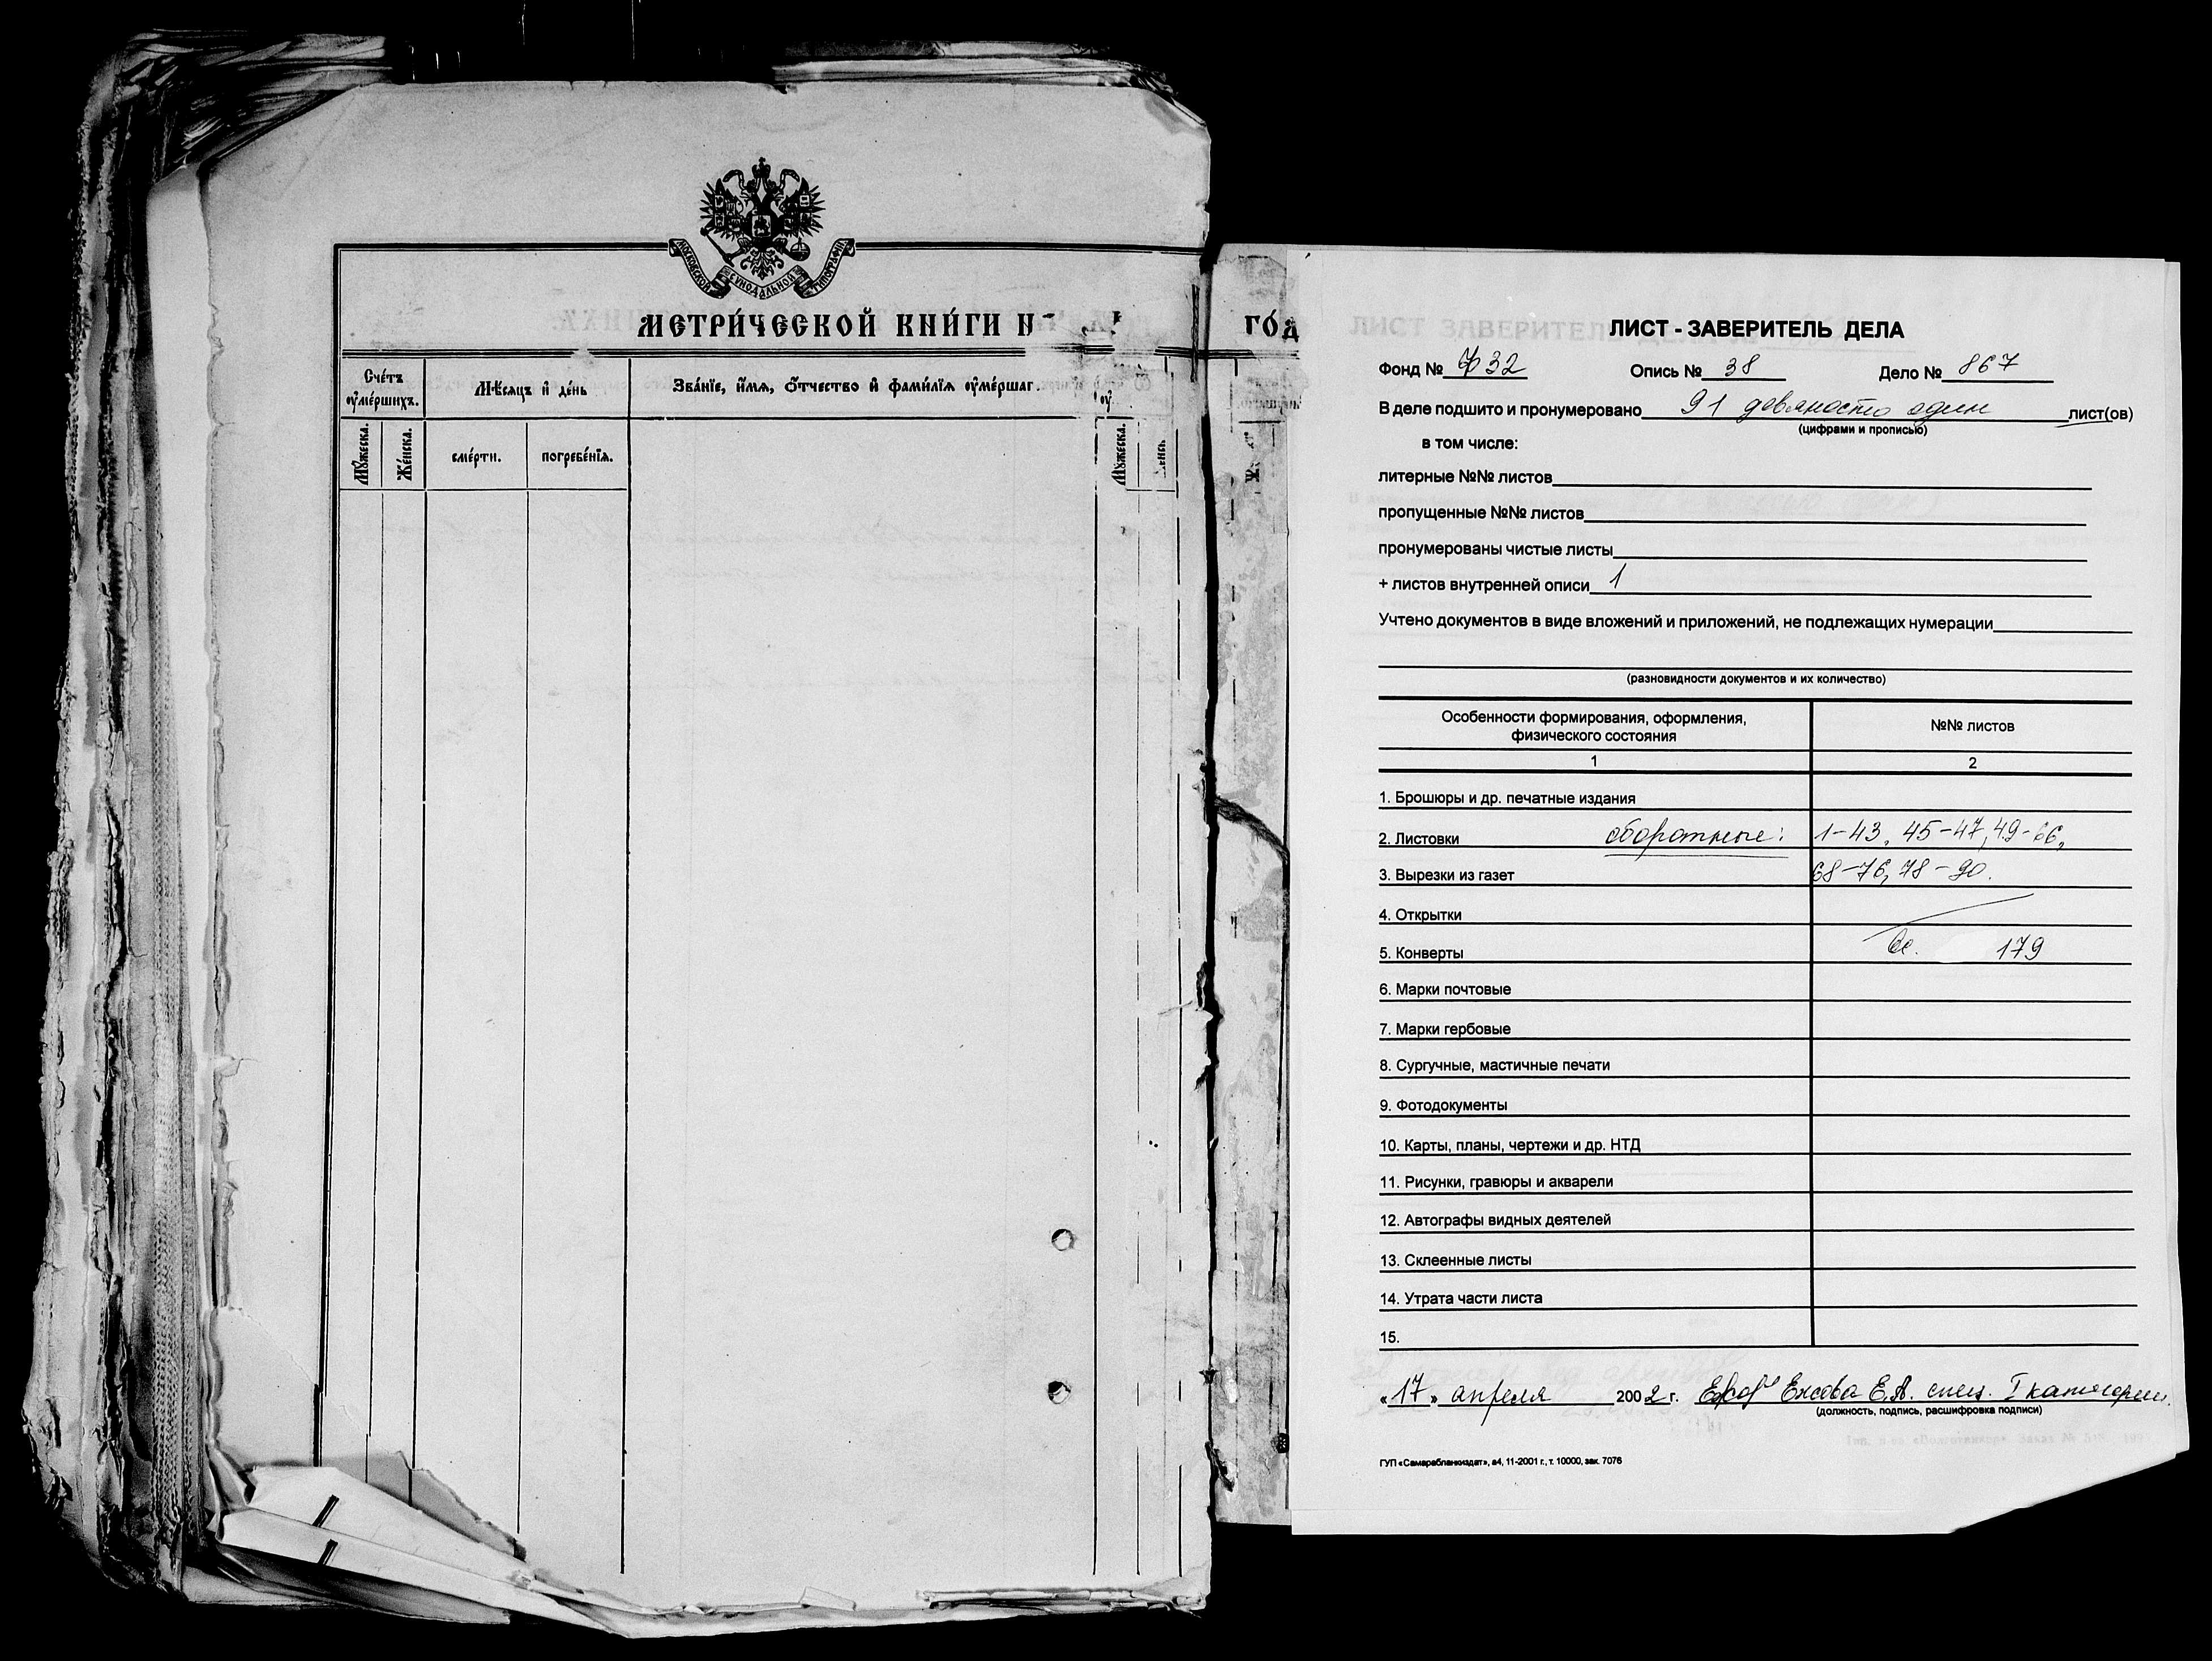 МОСКОВСКОЙ СѴНОДАЛЬНОЙ ТИПОГРАФІИ
МЕТРИ́ЧЕСКОЙ КНИ́ГИ Н
ГО́Д
Сче́тъ оу҆ме́ршихъ.
Мѣ́сяцъ и҆ де́нь
Зва́нїе, и҆́мя, ѻ҆́тчество и҆ фами́лїя оу҆ме́ршаг
Мꙋ́жеска.
Же́нска.
сме́рти.
погребе́нїя.
Мꙋ́жеска.
ЛИСТ - ЗАВЕРИТЕЛЬ ДЕЛА
Фонд № Ф32 Опись № 38 Дело № 867
В деле подшито и пронумеровано 91 девяносто один лист(ов)
(цифрами и прописью)
в том числе:
литерные №№ листов
пропущенные №№ листов
пронумерованы чистые листы
+ листов внутренней описи 1
Учтено документов в виде вложений и приложений, не подлежащих нумерации
(разновидности документов и их количество)
Особенности формирования, оформления, физического состояния
№№ листов
1 2
1. Брошюры и др. печатные издания
2. Листовки оборотные: 1-43, 45-47, 49-66,
3. Вырезки из газет 68-76, 78-90.
4. Открытки
5. Конверты 179
6. Марки почтовые
7. Марки гербовые
8. Сургучные, мастичные печати
9. Фотодокументы
10. Карты, планы, чертежи и др. НТД
11. Рисунки, гравюры и акварели
12. Автографы видных деятелей
13. Склеенные листы
14. Утрата части листа
15.
«17» апреля 2002 г. Ежова Е.А. спец. I категории.
(должность, подпись, расшифровка подписи)
ГУП «Самарабланкиздат», а4, 11-2001 г., т. 10000, зак. 7076